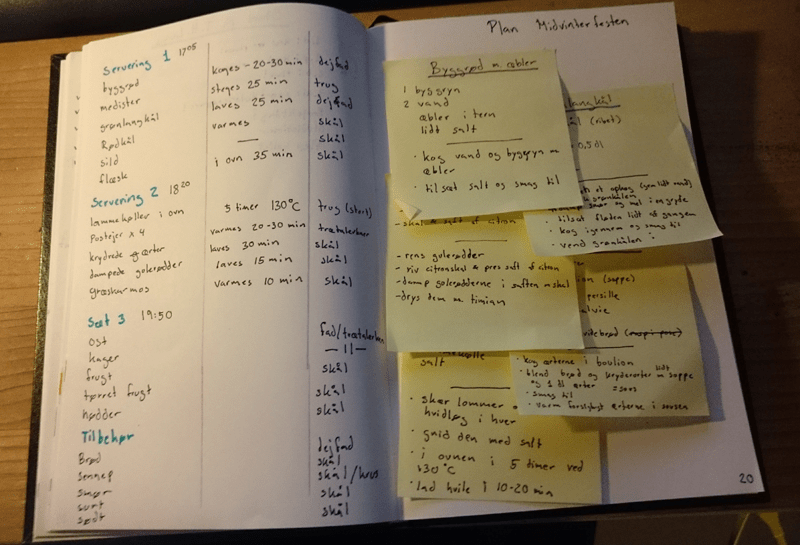 Servering 1 17:05
byggrød koges - 20-30 min dejfad
medister steges 25 min trug
grønlangkål laves 25 min dejfad
Rødkål varmes skål
sild — skål
flæsk i ovn 35 min skål
Servering 2 18:20
lammekøller i ovn 5 timer 130°C trug (stort)
Postejer x 4 varmes 20-30 min trætalerkner
krydrede ærter laves 30 min skål
dampede gulerødder laves 15 min skål
græskarmos varmes 10 min skål
Sæt 3 19:50
ost fad/trætalerken
kager — 11 —
frugt skål
tørret frugt skål
nødder skål
Tilbehør
Brød dejfad
sennep skål
smør skål/krus
surt skål
sødt skål
Plan Midvinterfesten
Byggrød m æbler
1 byggryn
2 vand
æbler i tern
lidt salt
· kog vand og byggryn m
æbler
· tilsæt salt og smag til
langkål
(ribet)
0,5 dl
· tilsæt fløden lidt af gangen
· kog igennem og smag til
· vend grønkålen i
- skal & saft af citron
- rens gulerødder
- riv citronskal & pres saft af citron
- damp gulerødderne i saften m skal
- drys dem m. timian
(suppe)
persille
salvie
hvidebrød
· kog ærterne i boulion
· blend brød og krydderurter m lidt suppe
og 1 dl ærter = sovs
· smag til
· varm forsigtigt ærterne i sovsen
salt
· skær lommer
hvidløg i hver
· gnid den med salt
· i ovnen i 5 timer ved
130°C
· lad hvile i 10-20 min
20